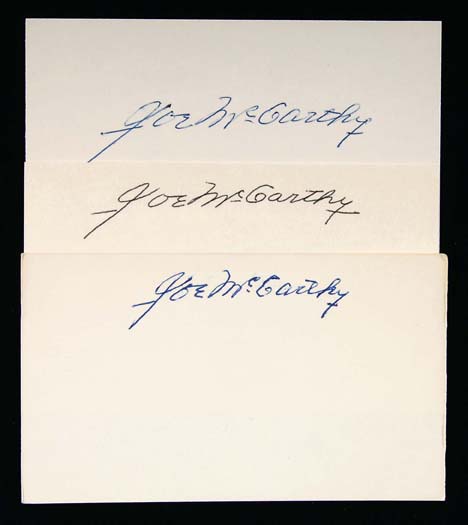 Joe McCarthy
Joe McCarthy
Joe McCarthy